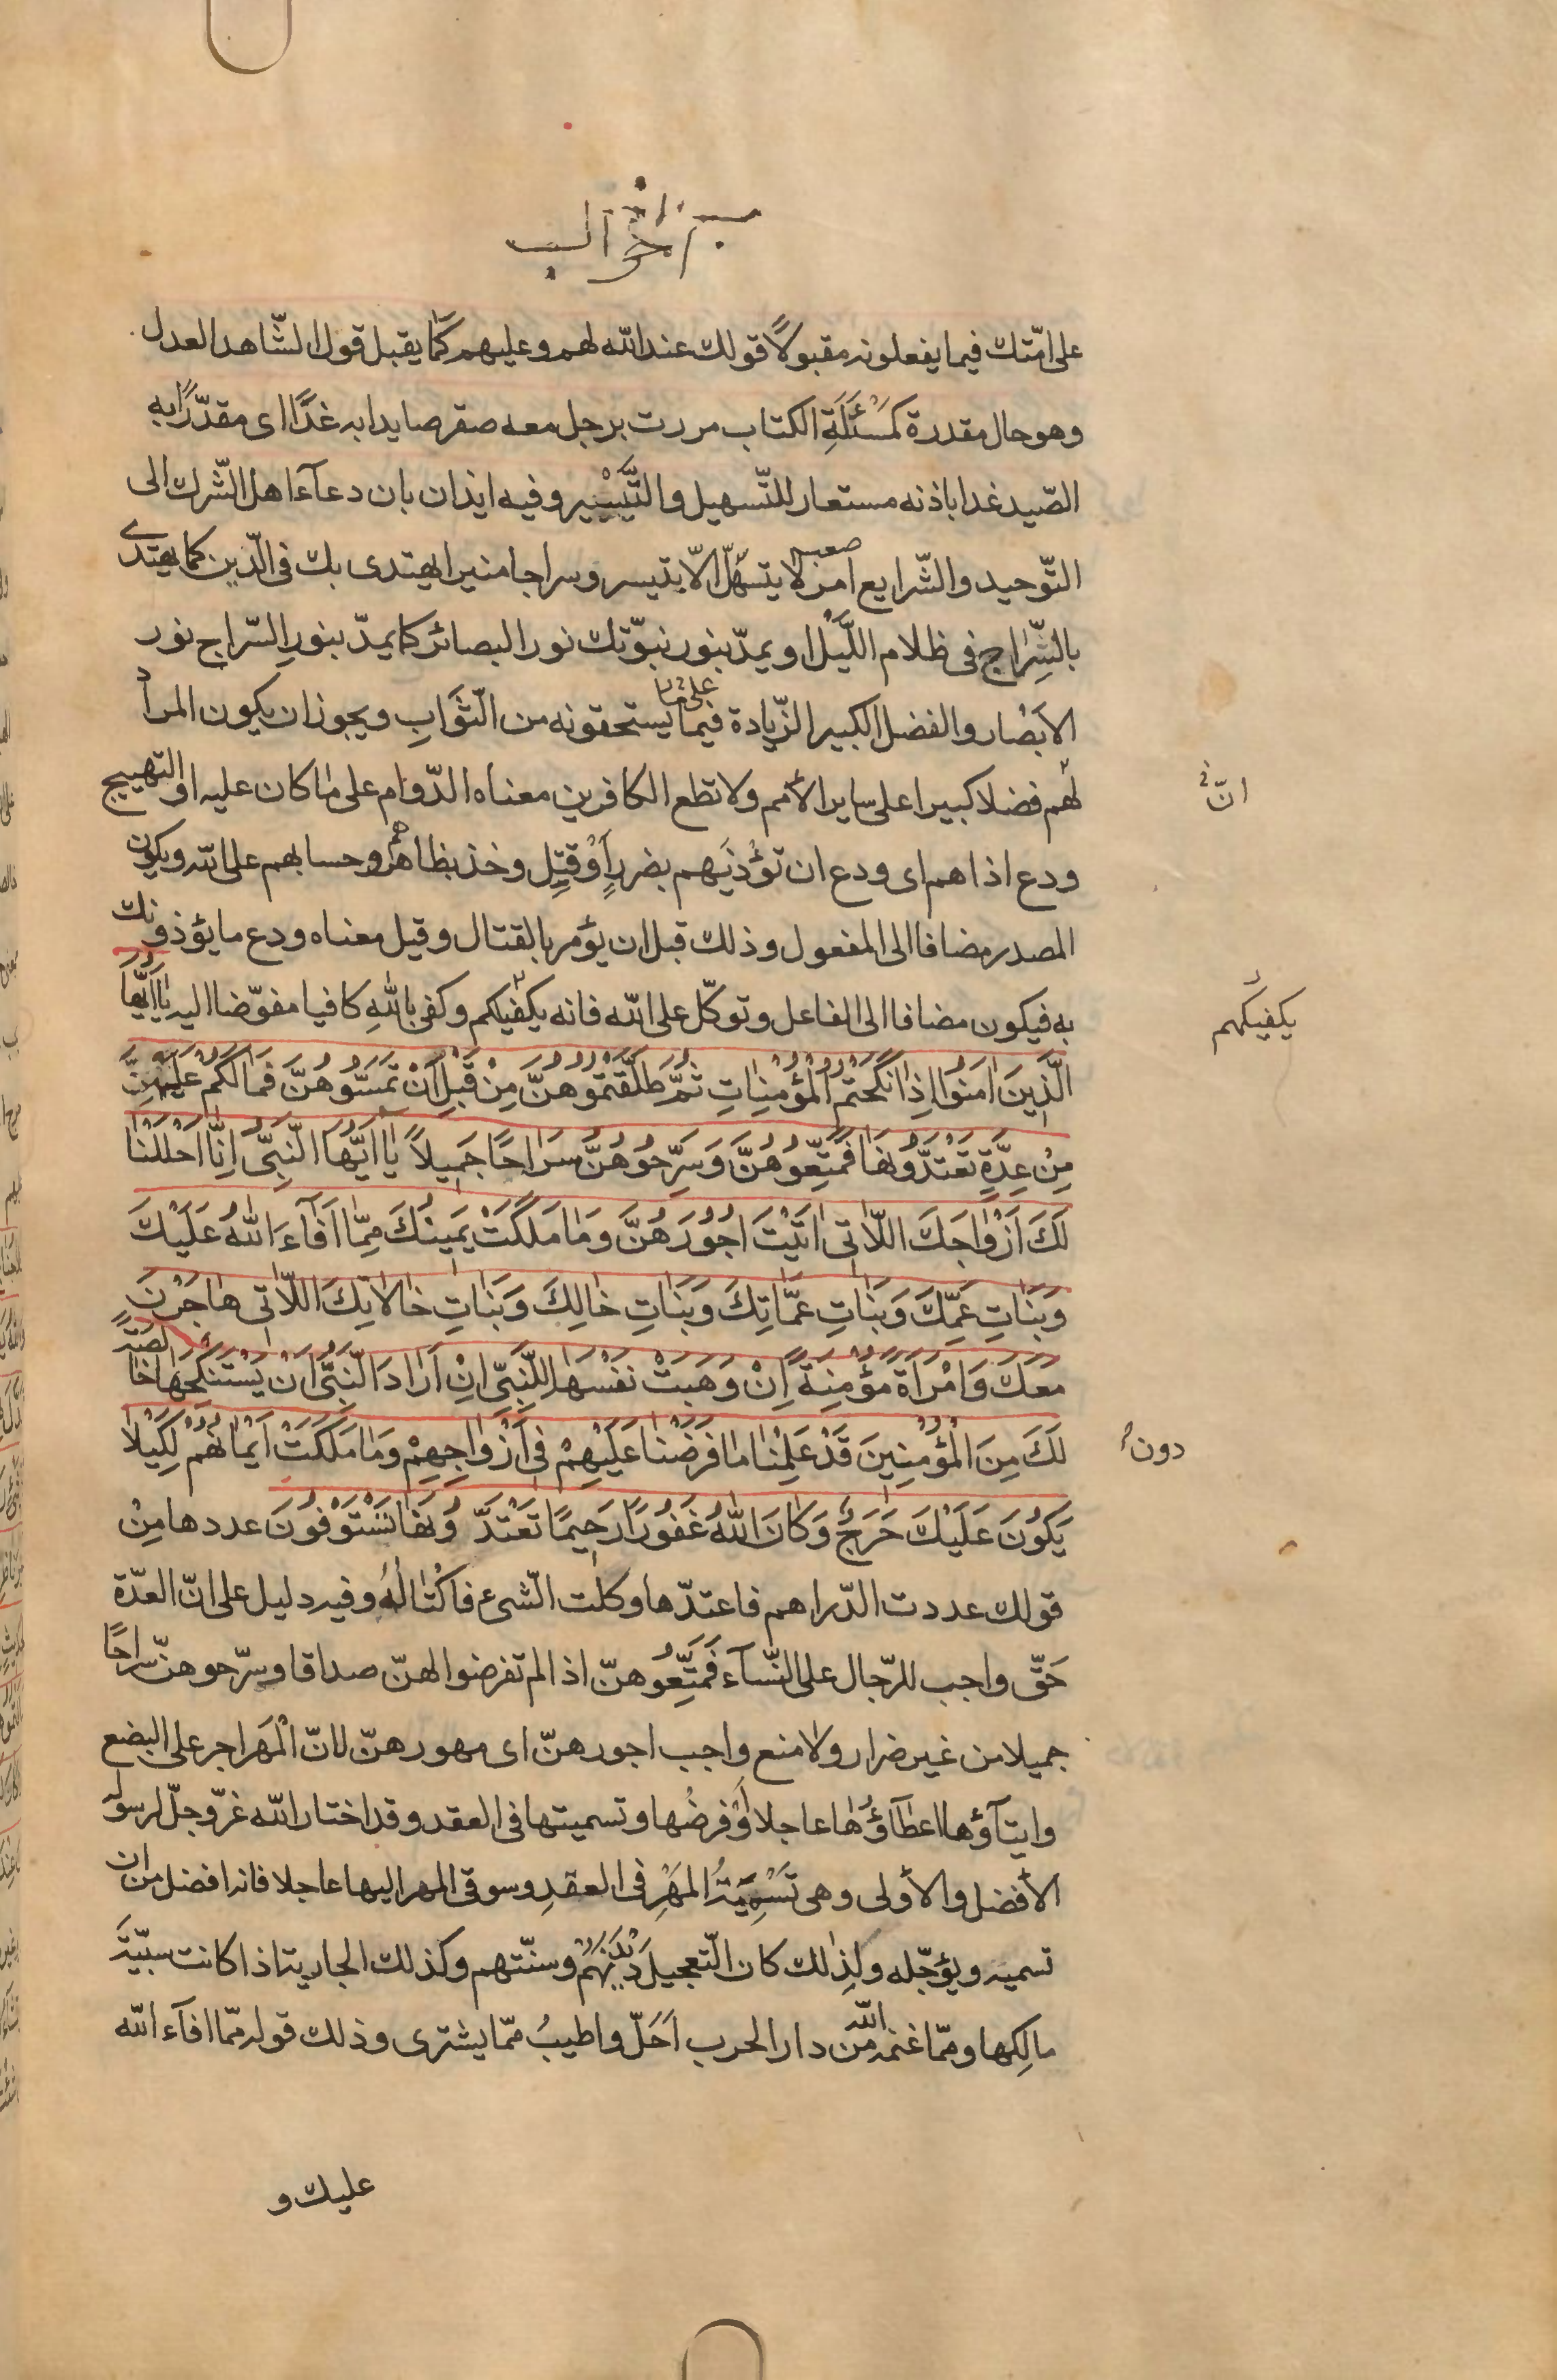 على امّتك فيما يفعلونه مقبولاً قولك عند الله لهم وعليهم كما يقبل قول الشّاهد العدل
وهو حال مقدرة كَمَسْئَلَةِ الكتاب مررت برجل معه صقر صايدا به غدًا اى مقدّرًا به
الصّيد غدا باذنه مستعار للتّسهيل والتَّيْسير وفيه ايذان بان دعآء اهل الشّرك الى
التّوحيد والشّرايع امر صعب لا يتسهّل الّا بتيسر وسراجا منيرا يهتدى بك فى الدّين كما يهتدى
بالسِّراج فى ظلام اللَّيْل او يمدّ بنور نبوّتك نور البصائر كما يمدّ بنورِ السّراج نور
الابْصار والفضل الكبير الزّيادة على ما فيما يستحقونه من الثَّوَابِ ويجوز ان يكون المراد
لهم فضلا كبيرا على ساير الاُمم ولا تطع الكافرين معناه الدّوام على ما كان عليه او التهييج
انّ
ودع اذاهم اى ودع ان تؤْذيَهم بضررٍ اَوْ قتِل وخذ بظاهرهم وحسابهم على الله ويكون
المصدر مضافا الى المفعول وذلك قبل ان يؤمر بالقتال وقيل معناه ودع ما يؤذونك
به فيكون مضافا الى الفاعل وتوكّل على الله فانه يكفيكم وكفى باللهِ كافيا مفوّضا اليه يٰا اَيُّهَا
يكفيكهم
الَّذِينَ اٰمَنُوا اِذٰا نَكَحْتُمُ الْمُؤْمِنٰاتِ ثُمَّ طَلَّقْتُمُوهُنَّ مِنْ قَبْلِ اَنْ تَمَسُّوهُنَّ فَمٰا لَكُمْ عَلَيْهِنَّ
مِنْ عِدَّةٍ تَعْتَدُّونَهٰا فَمَتِّعُوهُنَّ وَسَرِّحُوهُنَّ سَرٰاحًا جَمِيلاً يٰا اَيُّهَا النَّبِىُّ اِنّٰا اَحْلَلْنٰا
لَكَ اَزْوٰاجَكَ اللّٰاتِى اٰتَيْتَ اُجُورَهُنَّ وَمٰا مَلَكَتْ يَمِينُكَ مِمّٰا اَفٰآءَ اللهُ عَلَيْكَ
وَبَنٰاتِ عَمِّكَ وَبَنٰاتِ عَمّٰاتِكَ وَبَنٰاتِ خٰالِكَ وَبَنٰاتِ خٰالاٰتِكَ اللّٰاتِى هٰاجَرْنَ
مَعَكَ وَامْرَاَةً مُؤْمِنَةً اِنْ وَهَبَتْ نَفْسَهٰا لِلنَّبِىِّ اِنْ اَرٰادَ النَّبِىُّ اَنْ يَسْتَنْكِحَهٰا خٰالِصَةً
لَكَ مِنَ الْمُؤْمِنِينَ قَدْ عَلِمْنٰا مٰا فَرَضْنٰا عَلَيْهِمْ فِى اَزْوٰاجِهِمْ وَمٰا مَلَكَتْ اَيْمٰانُهُمْ لِكَيْلاٰ
دون
يَكُونَ عَلَيْكَ حَرَجٌ وَكٰانَ اللهُ غَفُورًا رَحِيمًا تَعْتَدُّونَهٰا تَسْتَوْفُونَ عددها مِنْ
قولك عددت الدّراهم فاعتدّها وكلت الشّىء فاكْتالَهُ وفيه دليل على انّ العدّة
حَقّ واجب للرّجال على النّسآء فَمَتِّعُوهنّ اذا لم تفرضوا لهنّ صداقا وسرّحوهنّ سراحًا
جميلا من غير ضرار ولا منع واجب اجورهنّ اى مهورهنّ لانّ الْمَهر اجر على البضع
وايتآؤها اعطآؤُها عاجلا اَوْ فرضُها وتسميتها فى العقد وقد اختار الله عزّ وجلّ لرسوله
الاَفضل والاَولى وهى تَسْمِيَةُ المَهْرِ فى العقدِ وسوق المهر اليها عاجلا فانه افضل من ان
تسميه ويؤجّله ولِذٰلك كان التّعجيلَ دَيْدَنَهُمْ وسنّتهم وكذلك الجارية اذا كانت سبيّة
مالكها وممّا غنمه الله من دار الحرب اَحَلّ واطيبُ ممّا يشترى وذلك قوله ممّا افآء الله
عليك و